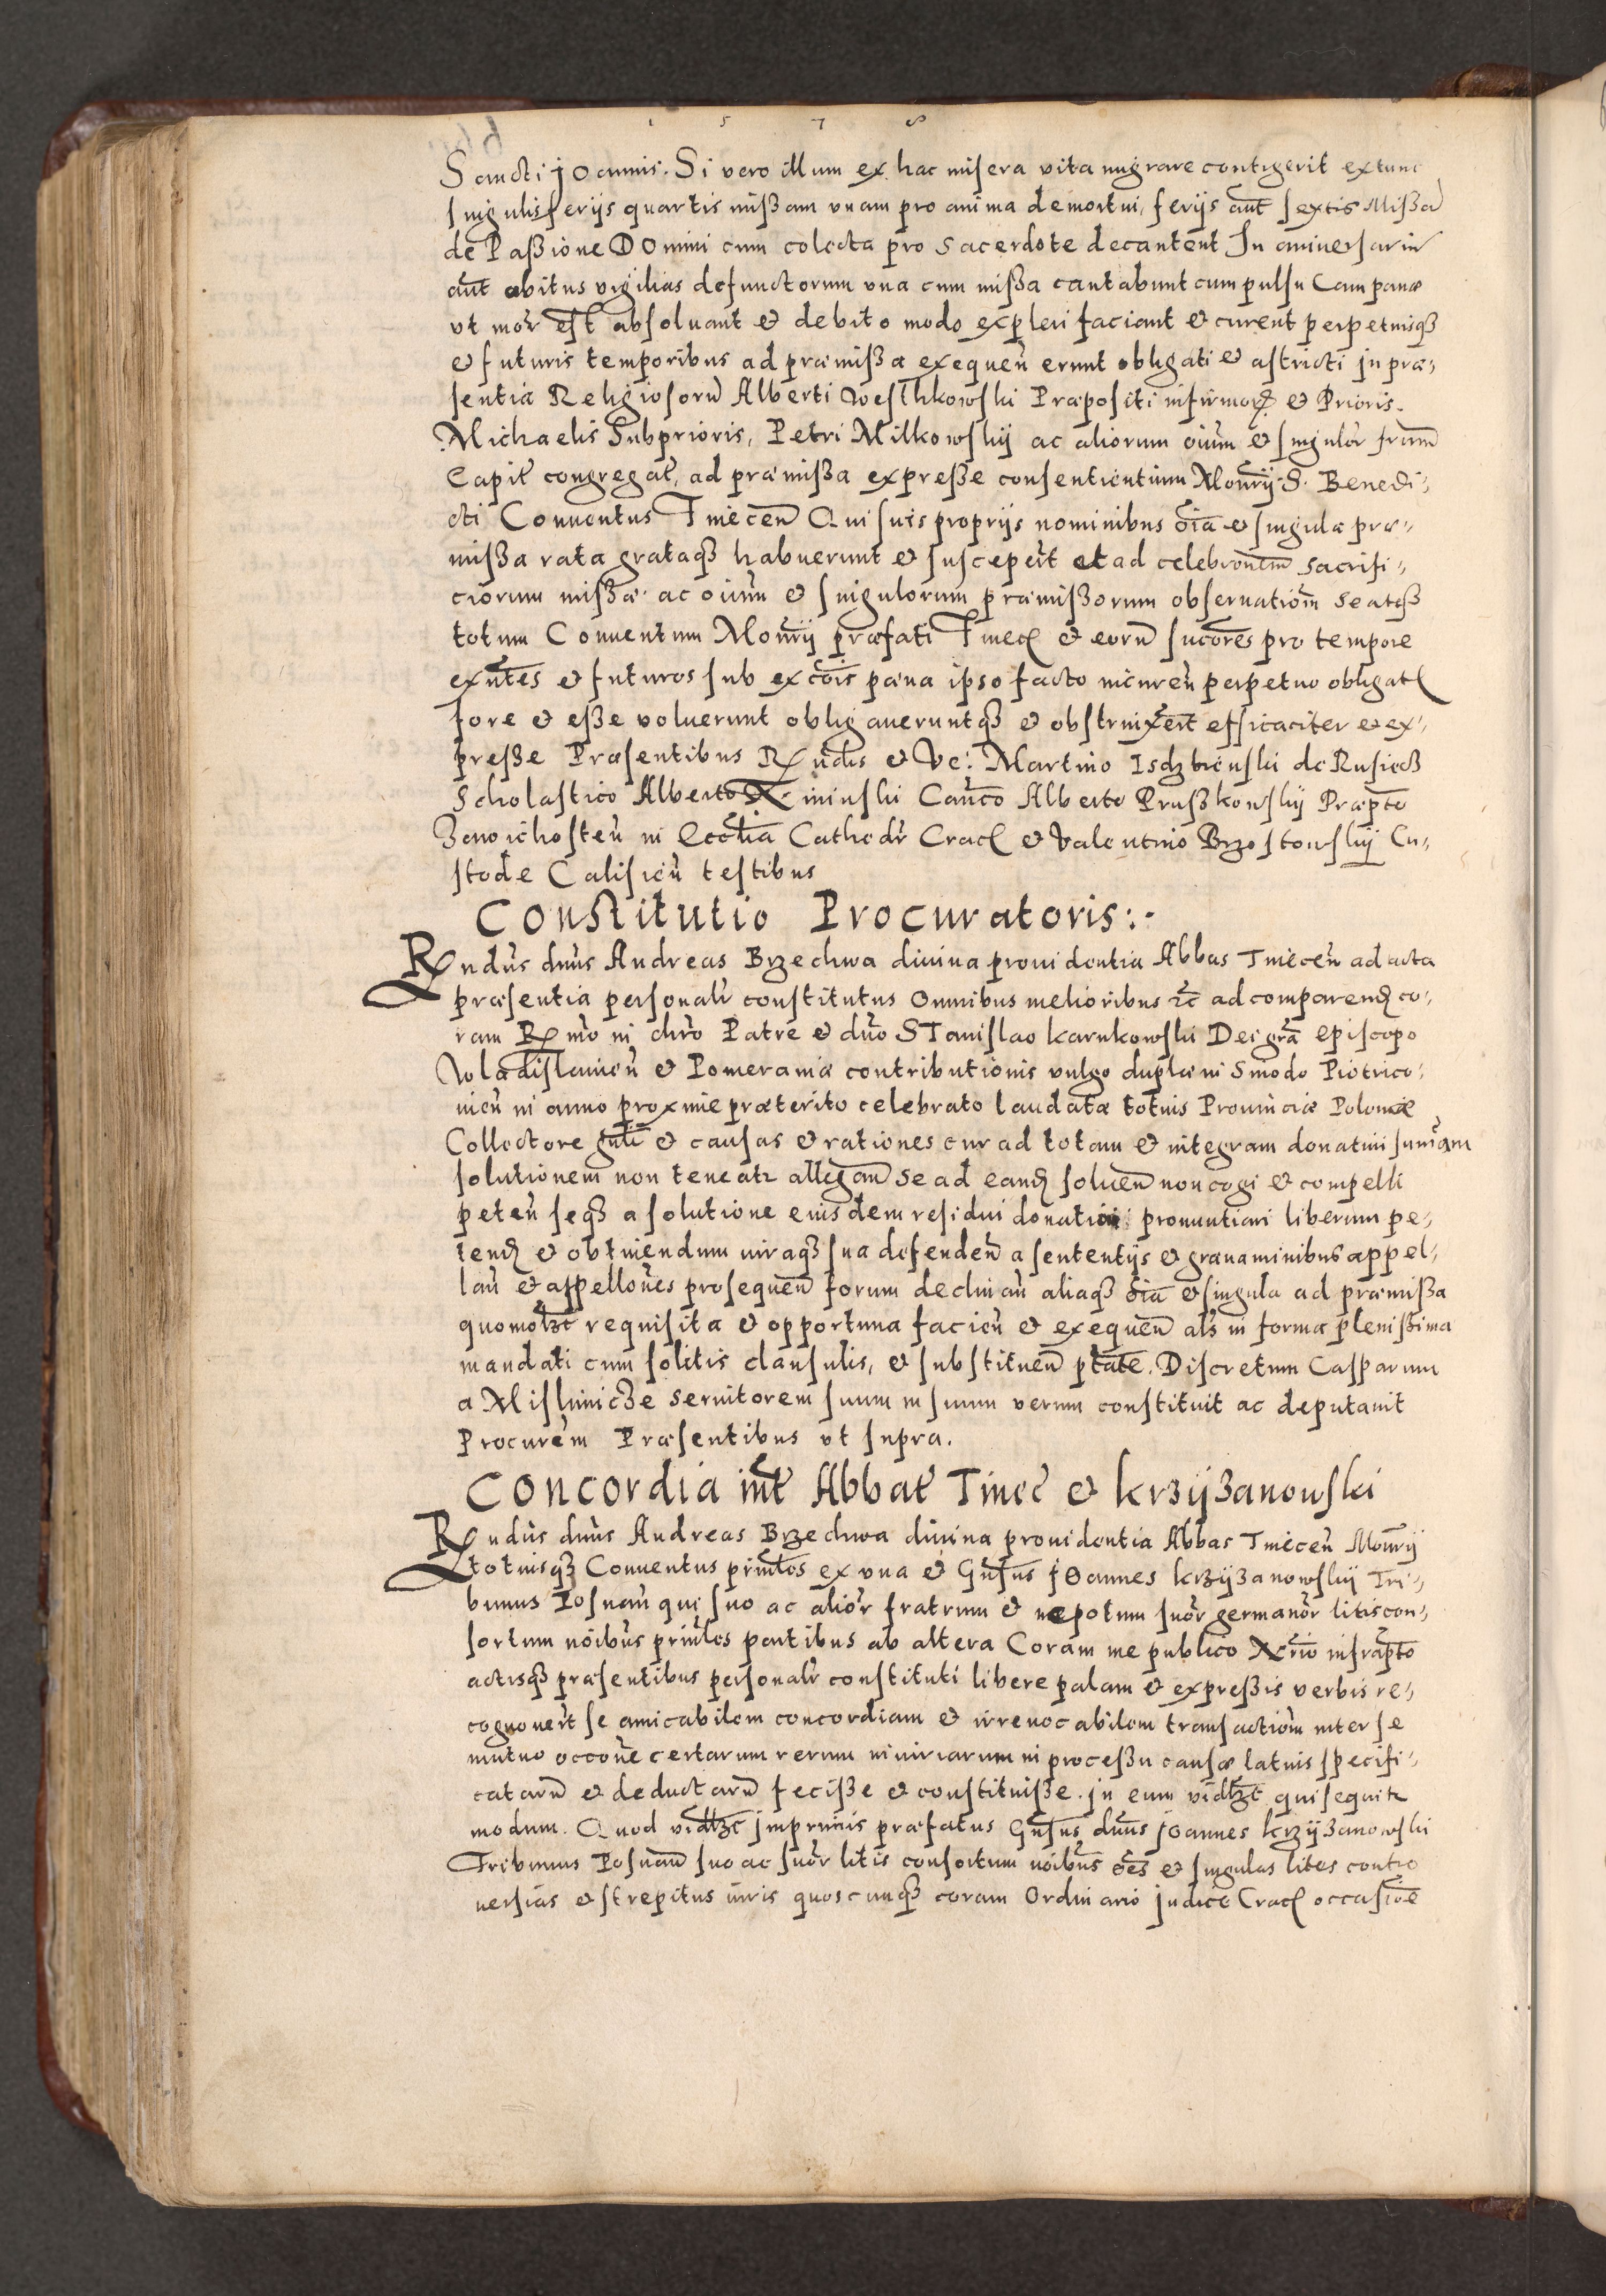 1 5 7 8
Sancti Joannis. Si vero illum ex hac misera vita migrare contigerit extunc
singulis ferijs quartis missam vnam pro anima demortui, ferijs aut̃ sextis Missã
de Passione DOmini cum colecta pro sacerdote decantent In anniversariu
aut̃ obitus vigilias defunctorum vna cum missa cantabunt cum pulsu Campanæ
vt mor̃ est absoluant et debito modo expleri faciant et curent perpetuisq3
et futuris temporibus ad præmissa exequeñ erunt obligati et astricti in præ-
sentia Religiosorũ Alberti Præpositi infirmorꝝ et Prioris.
Michaelis Subprioris, Petri Milkowskij ac aliorum oium̃ et singulor̃ frum̃
Capit̃ congregat̃, ad præmissa expresse consentientium Mon̄rij S. Benedi-
cti Conuentus Tinecen̄ Qui suis proprijs nominibus oĩa et singula præ-
missa rata grataq3 habuerunt et susceper̃t et ad celebronem̃ sacrifi-
ciorum missæ ac oium̃ et singulorum præmissorum obseruationem̃ se atq3
totum Conuentum Mon̄rij præfati Tinec̃ et eorũ sucõres pro tempore
exñtes et futuros sub excõis pæna ipso facto incureñ perpetuo obligat̃
fore et esse voluerunt obligaueruntq3 et obstrinxer̃t efficaciter et ex-
presse Præsentibus Rñdis et Ve: Martino Isdzbienski de Rusiecz
Scholastico Alberto Cañco Alberto Pruszkowskij Præpt̃o
Zawichosteñ in Eccl̃ia Cathedr̃ Crac̃ et Valentino Brzostowskij Cu-
stode Calisieñ testibus
Constitutio Procuratoris:.
Rñdus dñus Andreas Brzechwa diuina prouidentia Abbas Tineceñ ad acta
præsentia personalr̃ constitutus Omnibus melioribus &c̃ ad comparendꝝ co-
ram Rmo in chr̃o Patre et dño STanislao Karnkowski Dei grã episcopo
Wladislauieñ et Pomeraniæ contributionis vulgo duplæ in Sinodo Piotrico-
uieñ in anno proxime præterito celebrato laudatæ totius Prouinciæ Poloniæ
Collectore gñli et causas et rationes cur ad totam et integram donatiui sum̃am
solutionem non teneatr allegañ se ad eandꝝ solueñ non cogi et compelli
peteñ seq3 a solutione eiusdem residui donatiui pronuntiari liberum pe-
tendꝝ et obtinendum iuraq3 sua defendeñ a sententijs et grauaminibus appel-
lañ et appellones prosequeñ forum declinañ aliaq3 oĩa et singula ad præmissa
quomolzt requisita et opportuna facieñ et exequeñ als̃ in forma plenissima
mandati cum solitis clausulis, et substitueñ ptãte. Discretum Casparum
a Mislimicze seruitorem suum in suum verum constituit ac deputauit
Procurem̃ Præsentibus vt supra.
Concordia int̃ Abbat̃ Tinec̃ et Krzijzanowski
Rñdus dñus Andreas Brzechwa diuina prouidentia Abbas Tineceñ Mon̄rij
totiusq3 Conuentus prin̄les ex vna et Gn̄sus JOannes Krzijzanowskij Tri-
bunus Posnañ qui suo ac alior̃ fratrum et nepotum suor̃ germanor̃ litiscon-
sortum nõibus prin̄les partibus ab altera Coram me publico Nrio infrapt̃o
actisq3 præsentibus personalr̃ constituti libere palam et expressis verbis re-
cognouer̃t se amicabilem concordiam et irreuocabilem transactionem̃ inter se
mutuo occone certarum rerum iniuriarum in processu causæ latius specifi-
catarũ et deductarũ fecisse et constituisse. In eum vidlzt qui sequitr
modum. Quod vidlzt imprimis præfatus Gn̄sus dñus JOannes Krzijzanowski
Tribunus Posnañ suo ac suor̃ litis consortum nõibus oẽs et singulas lites contro
uersias et strepitus iuris quoscunq3 coram Ordinario Judice Crac̃ occasiõe